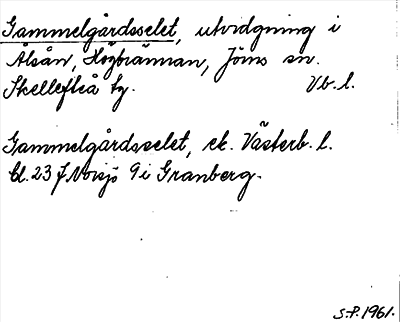 Gammelgårdsselet, utvidgning i
Ålsån, Högbrännan, Jörns sn.
Skellefteå tg. Vb. l.
Gammelgårdsselet, ek. Västerb. l.
bl. 23 J Norsjö 9 i Granberg.
S.P. 1961.